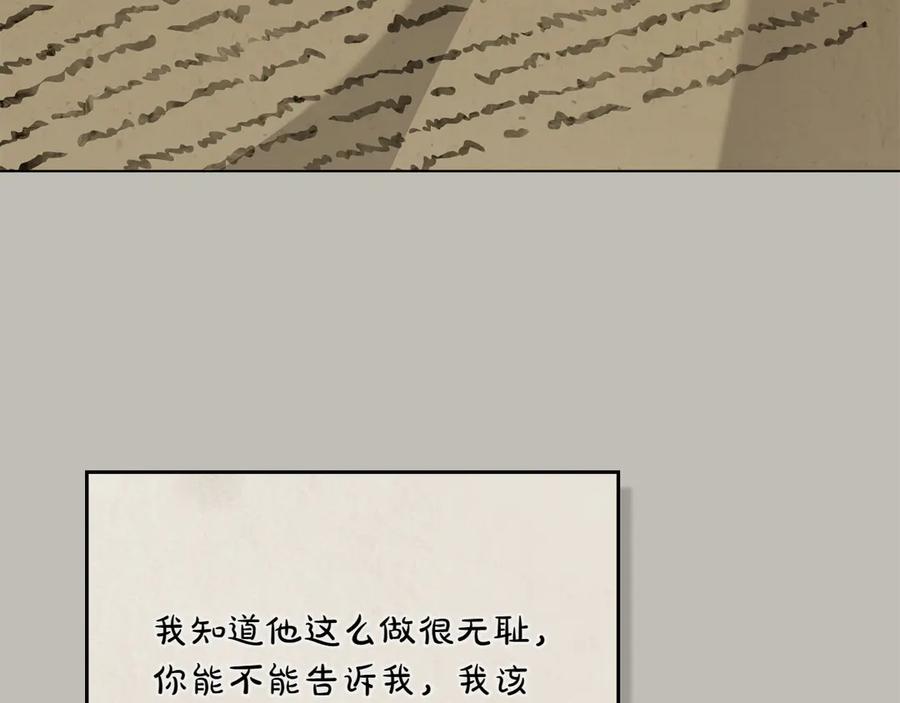 我知道他这么做很无耻,
你能不能告诉我，我该